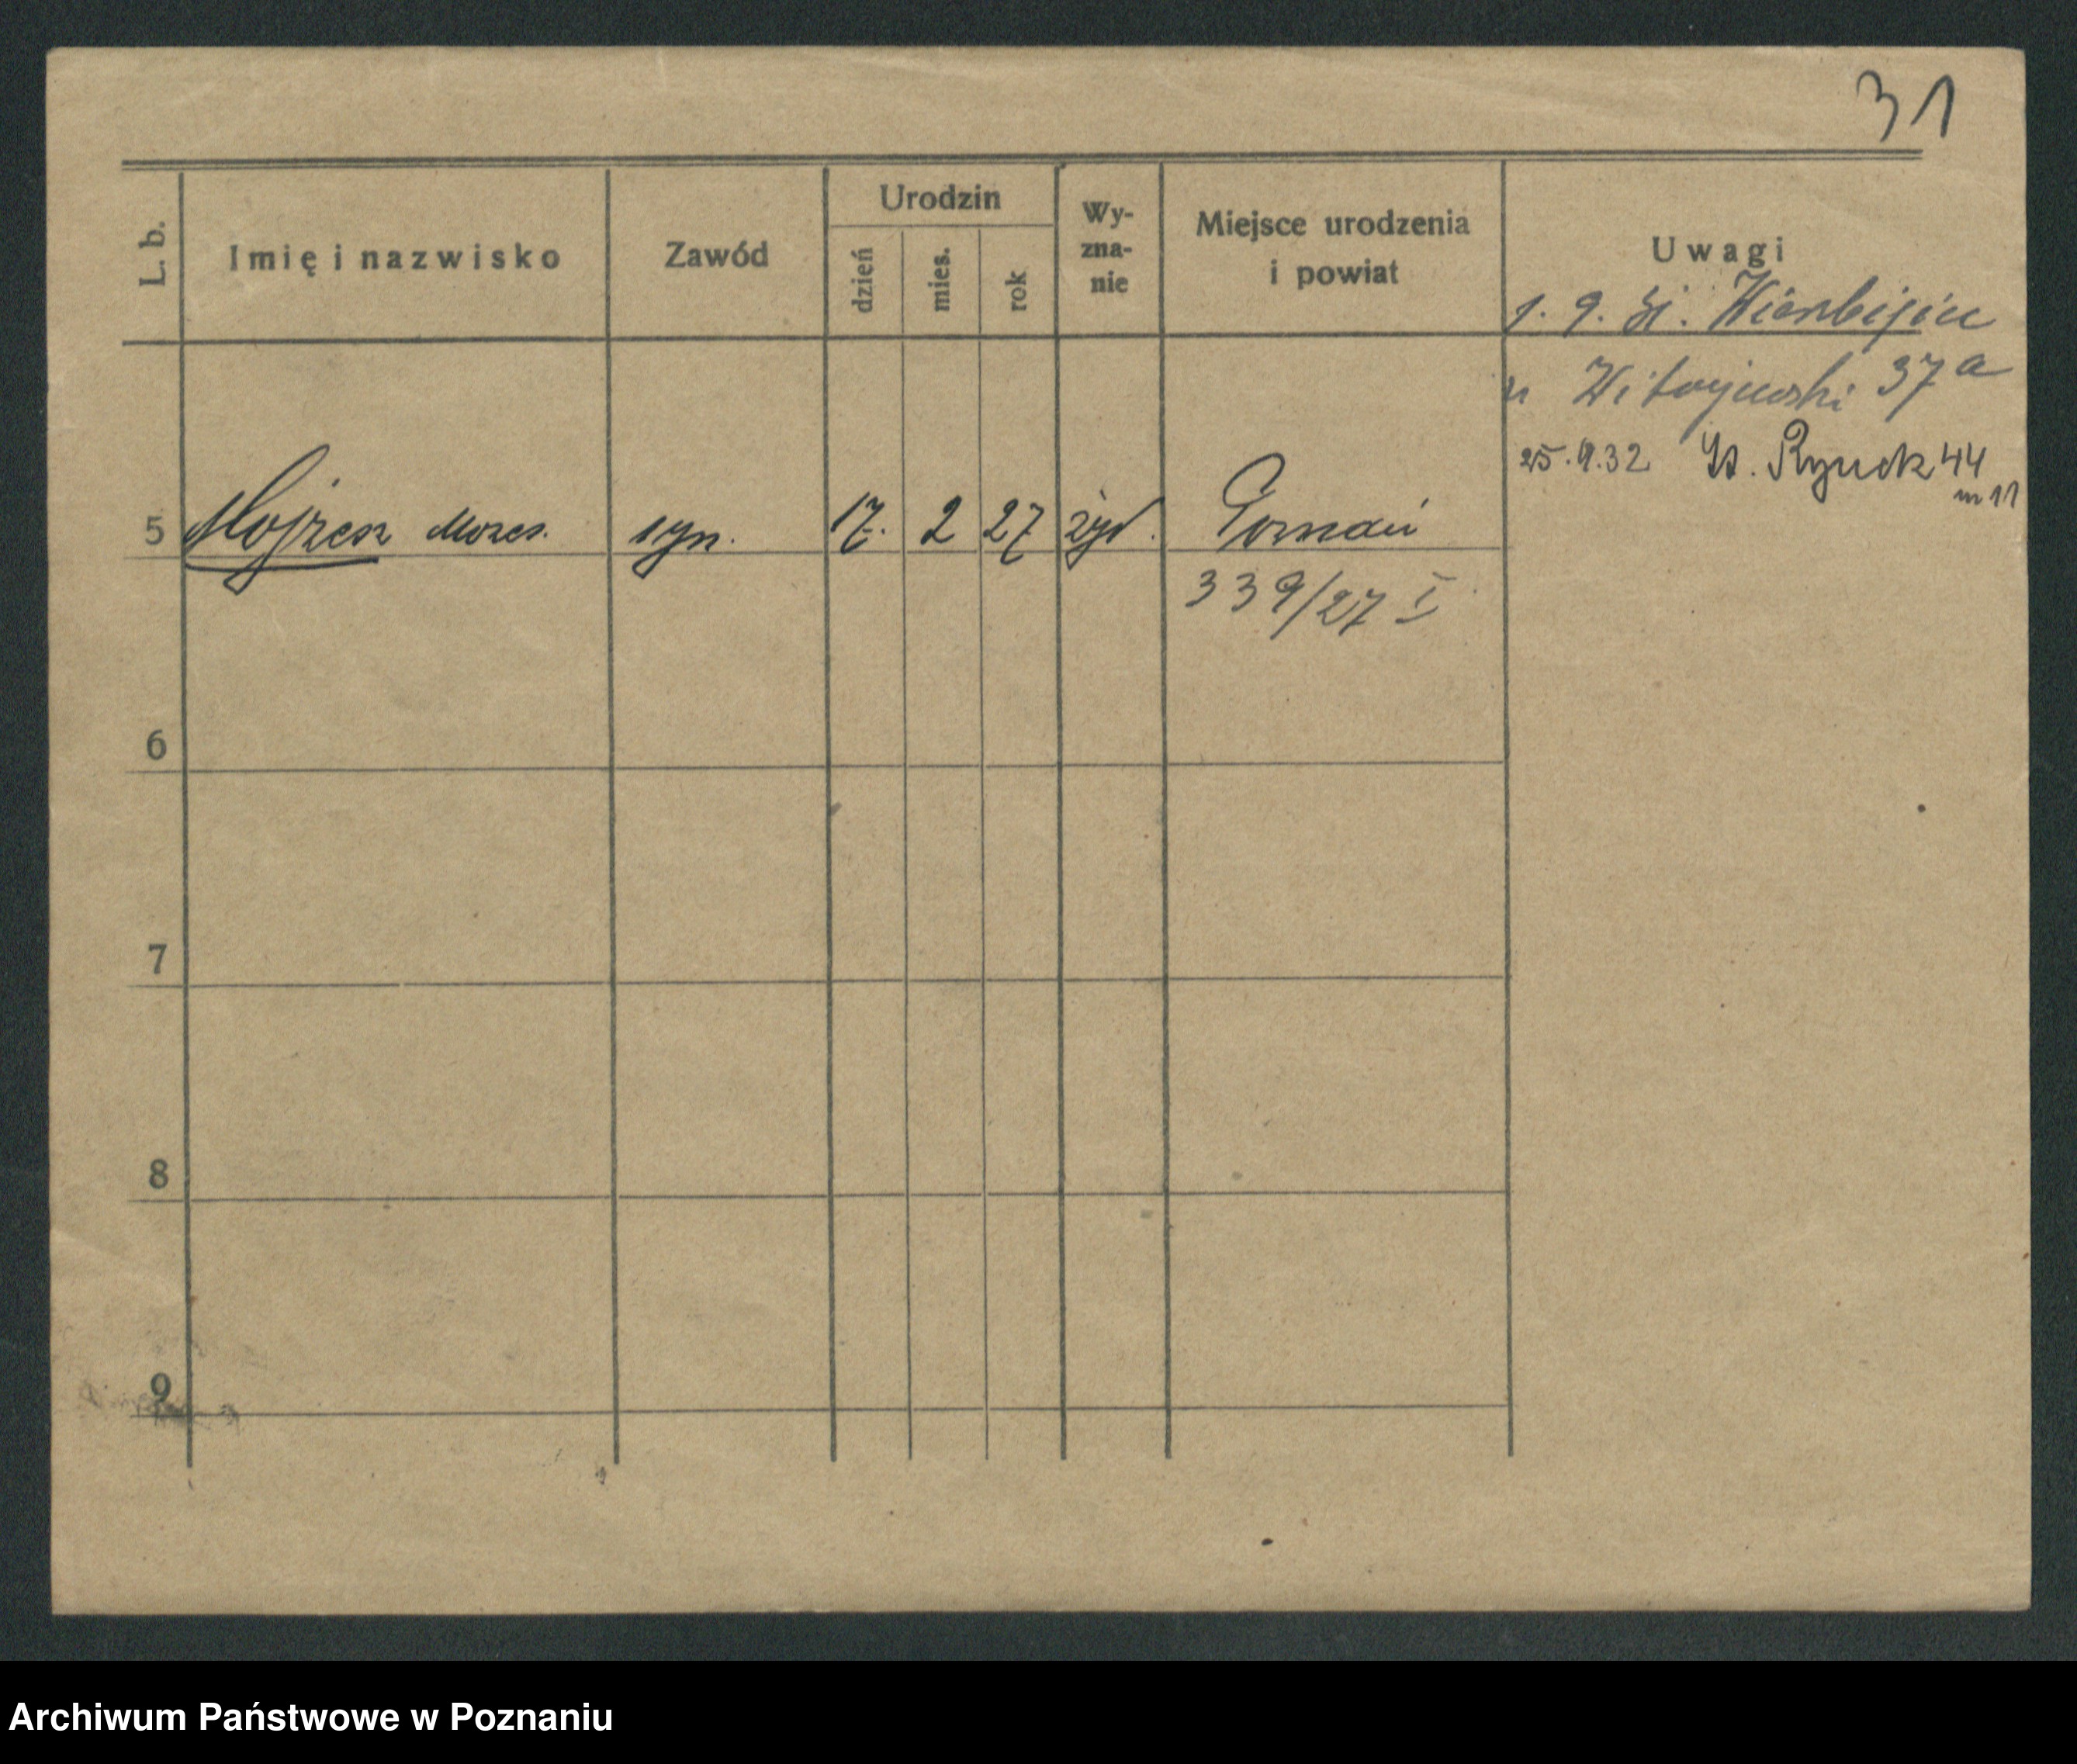 31
L. b.
Imię i nazwisko
Zawód
Urodzin
dzień
mies.
rok
Wy-
zna-
nie
Miejsce urodzenia
i powiat
Uwagi
1. 9. 31. Wierzbięcice
u 37 a
25.9.32 St. Rynek 44
m 11
5 Mojżesz Mozes. syn. 17. 2 27 żyd. Poznań
339/27 I
6
7
8
9
Archiwum Państwowe w Poznaniu